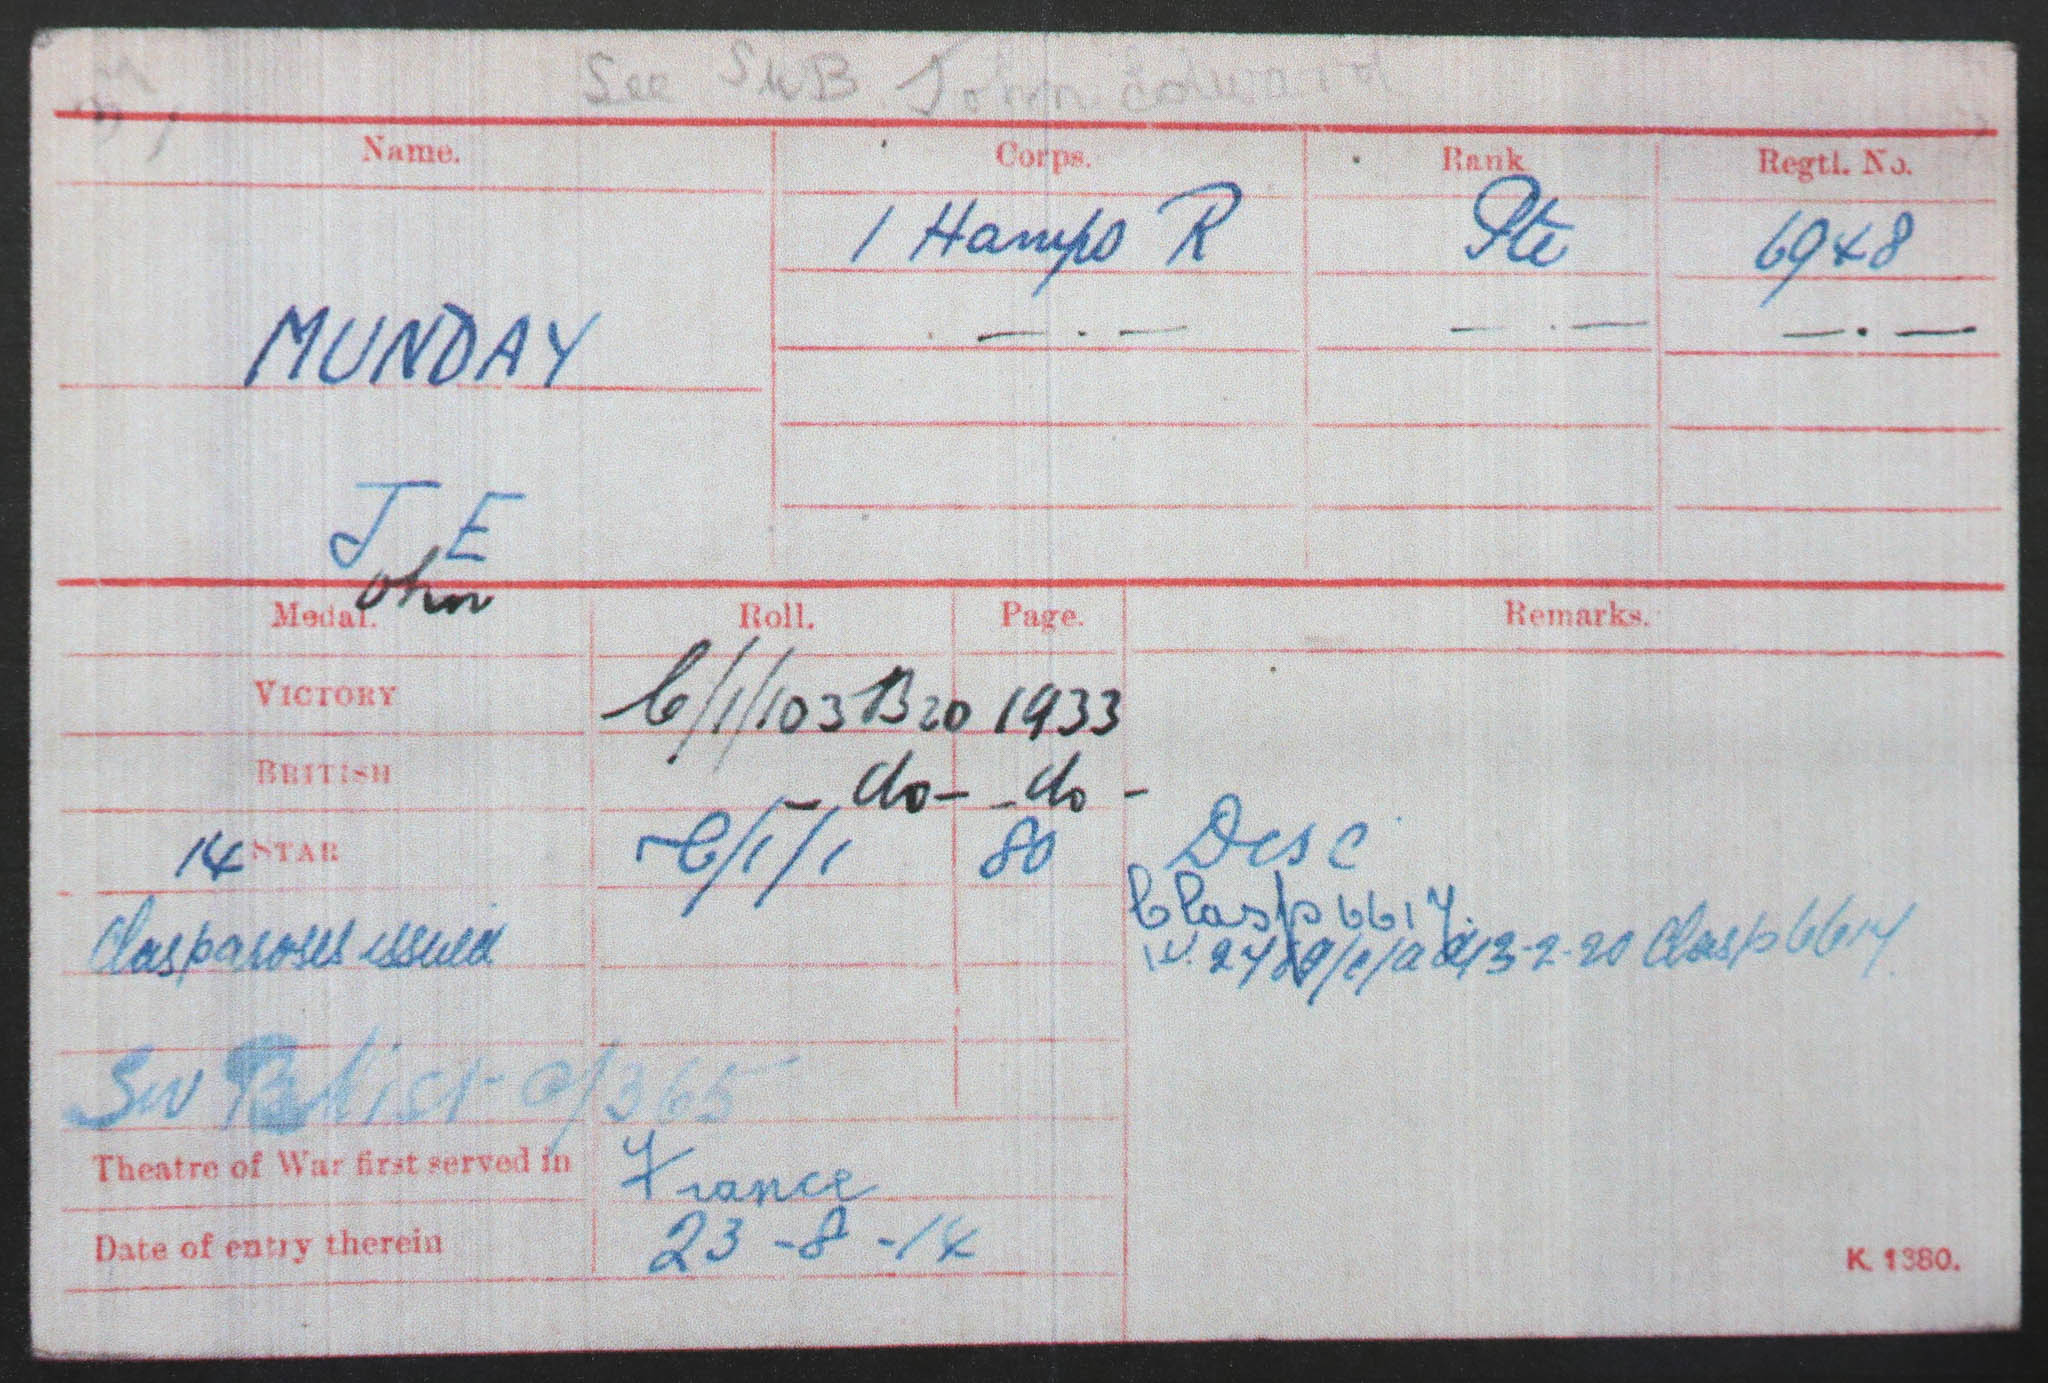 See SWB John Edward
Name. Corps. Rank Regtl. No.
1 Hamps R Pte 6948
MUNDAY — . — — . — — . —
J E
ohn
Medal. Roll. Page. Remarks.
VICTORY C/1/103 B20 1933
BRITISH - do - - do -
14 STAR C/1/1 80 Desc
Clasp & roses issued Clasp 6617
I.V. 2729/e/a d/13-2-20 Clasp 6614
SW B List C/365
Theatre of War first served in France
Date of entry therein 23-8-14
K. 1380.